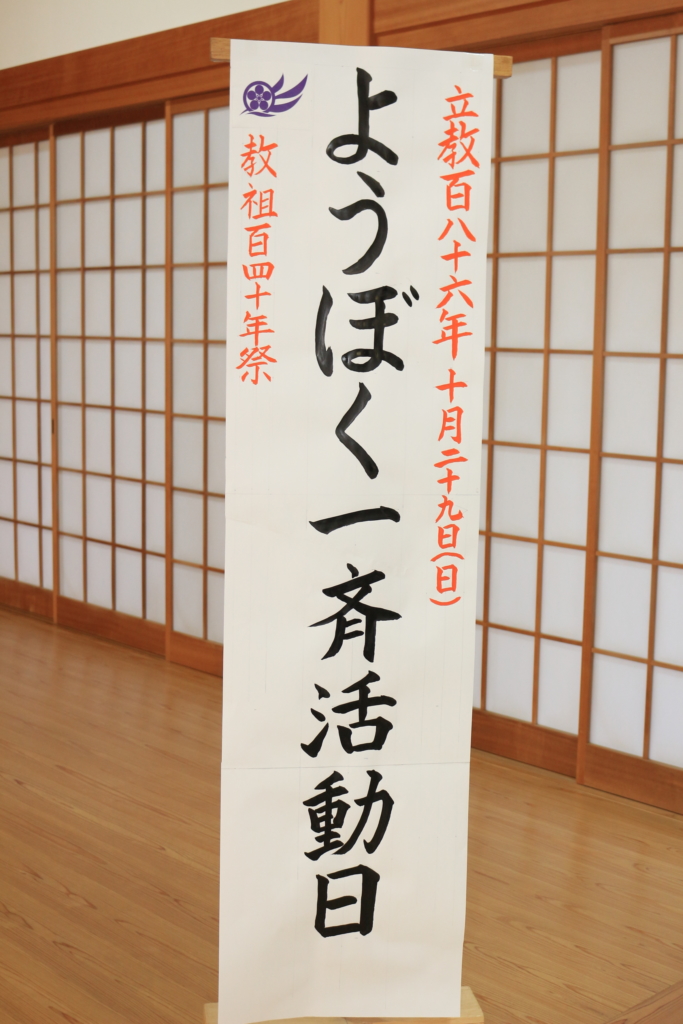 立教百八十六年 十月二十九日(日)
ようぼく一斉活動日
教祖百四十年祭